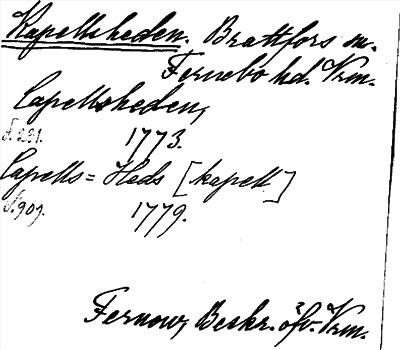 Kapellsheden. Brattfors sn.
Fernebo hd. Vrm.
Capellsheden,
s. 231. 1773.
Capells=Heds [kapell]
s. 909. 1779.
Fernow, Beskr. öfv. Vrm.